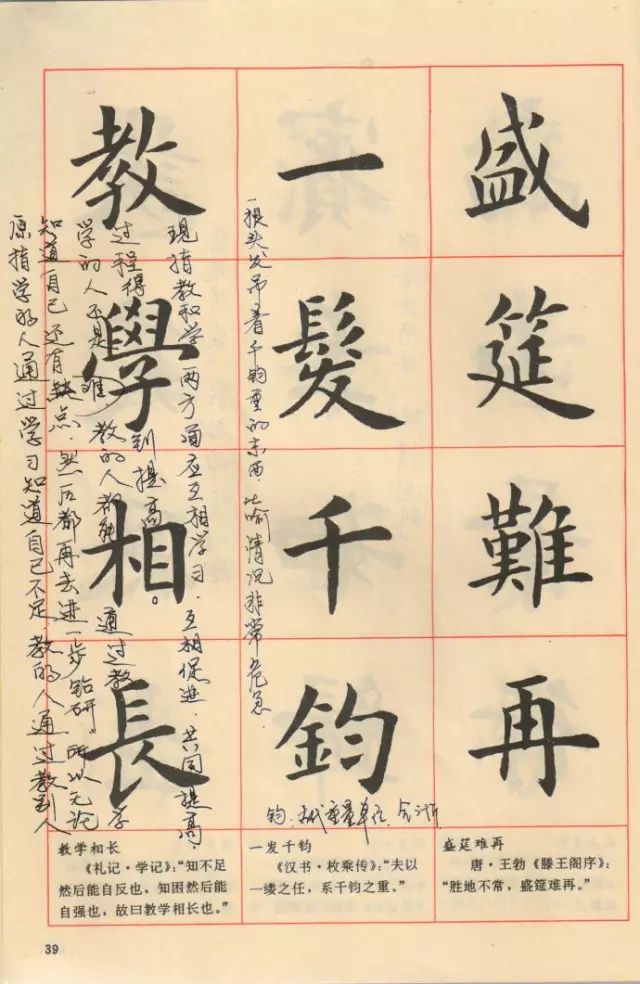 盛筵難再
一髮千鈞
教學相長
一根头发吊着千钧重的东西，比喻情况非常危急．
钧：古代重量单位，合三十斤
原指学的人通过学习知道自己不足，教的人通过教别人
知道自己还有缺点．然后都再去进一步钻研。所以无论
学的人还是 教的人都能 通过教学
过程得到提高。
现指教和学两方面应互相学习．互相促进．共同提高．
盛筵难再
唐·王勃《滕王阁序》：
“胜地不常，盛筵难再。”
一发千钧
《汉书·枚乘传》：“夫以
一缕之任，系千钧之重。”
教学相长
《礼记·学记》：“知不足
然后能自反也，知困然后能
自强也，故曰教学相长也。”
39